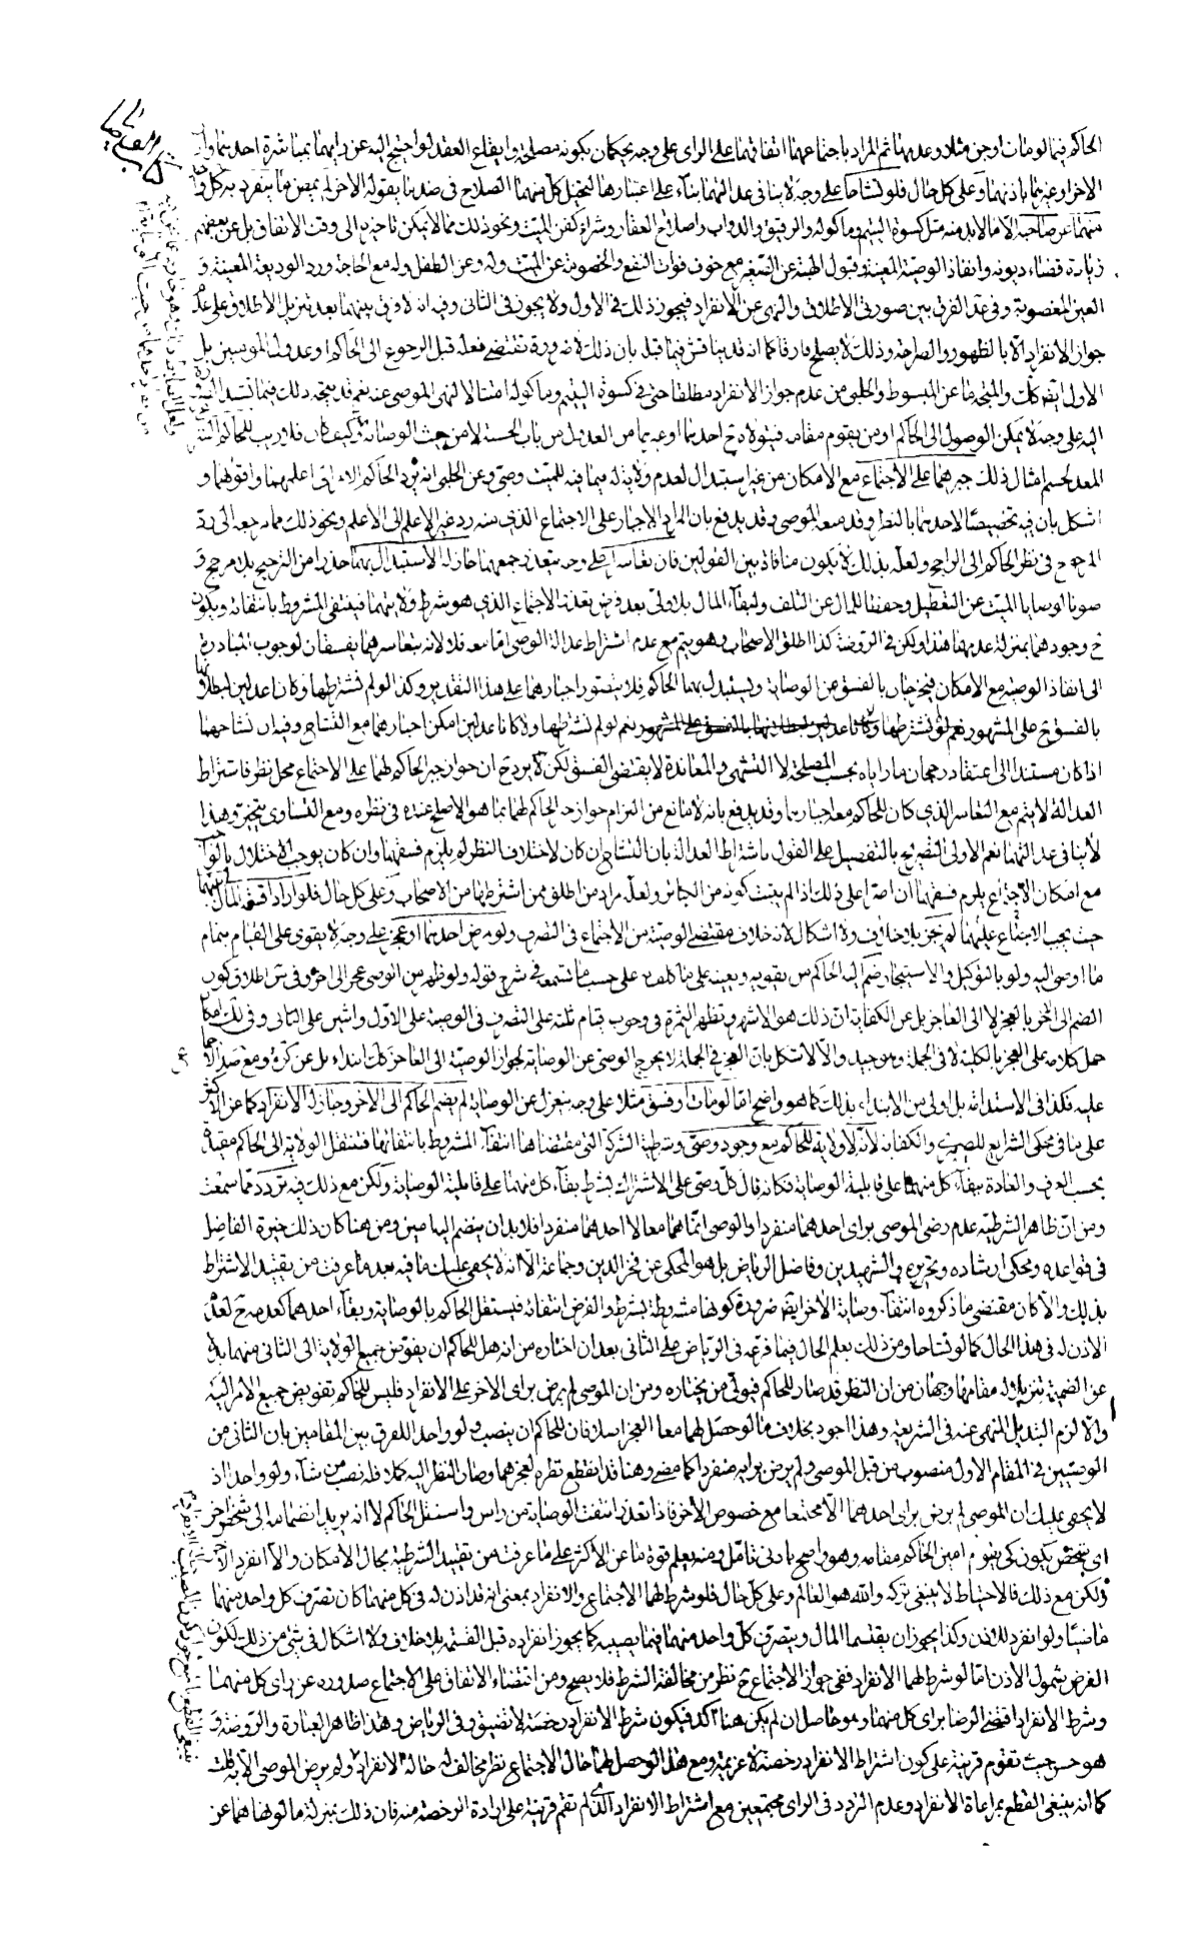 الحاكم فيما لو ماتا او جن مثلا وعدمهما ثم المراد باجتماعهما اتفاقهما على الراى على وجه يحكمان بكونه مصلحة وايقاع العقد لو احتيج اليه عن رايهما بمباشرة احدهما او
الاخر او غيرهما باذنهما وعلى كل حال فلو تشاحا على وجه لا ينافى عدالتهما بناء على اعتبارها لتخيل كل منهما الصلاح فى ضد ما يقوله الاخر لم يمض ما ينفرد به كل
منهما عن صاحبه الا ما لا بد منه مثل كسوة اليتيم وماكوله والرقيق والدواب واصلاح العقار وشراء كفن الميت ونحو ذلك مما لا يمكن تاخيره الى وقت الاتفاق بل عن بعضهم
زيادة قضاء ديونه وانفاذ الوصية المعينة وقبول الهبة عن الصغير مع خوف فوات النفع والخصومة عن الميت وله وعن الطفل وله مع الحاجة ورد الوديعة المعينة و
العين المغصوبة وفى عد الفرق بين صورتى الاطلاق والنهى عن الانفراد فيجوز ذلك فى الاول ولا يجوز فى الثانى وفيه انه لا فرق بينهما بعد تنزيل الاطلاق على عدم
جواز الانفراد الا بالظهور والصراحة وذلك لا يصلح فارقا كما انه قد يناقش فيما قيل بان ذلك لا ضرورة تقتضى فعله قبل الرجوع الى الحاكم او عدول المومنين بل
الاول ايضا كك والمتجه ما عن المبسوط والحلبى من عدم جواز الانفراد مطلقا حتى فى كسوة اليتيم وماكوله امتثالا لنهى الموصى عنه نعم قد يتجه ذلك فيما تشتد
اليه على وجه لا يمكن الوصول الى الحاكم او من يقوم مقامه فيتولاه ح احدهما او غيرهما من العدول من باب الحسبة لا من حيث الوصاية وكيف كان فلا ريب للحاكم
المعد لحسم امثال ذلك جبرهما على الاجتماع مع الامكان من غير استبدال لعدم ولايته له فيما فيه للميت وصى وعن الحلبى انه يرد الحاكم الامر الى اعلمهما واقواهما و
اشكل بان فيه تخصيصا لاحدهما بالنظر وقد منعه الموصى وقد يدفع بان المراد الاجبار على الاجتماع الذى منه رد غير الاعلم الى الاعلم ونحو ذلك مما مرجعه الى رد
المرجوح فى نظر الحاكم الى الراجح ولعله بذلك لا يكون منافاة بين القولين فان تعاسرا على وجه يتعذر جمعهما جاز له الاستبدال بهما حذرا من الترجيح بلا مرجح و
صونا لوصايا الميت عن التعطيل وحفظا للمال عن التلف ولبقاء المال بلا ولى بعد فرض تعذر الاجتماع الذى هو شرط ولايتهما فينتفى المشروط بانتفائه ويكون
ح وجودهما بمنزلة عدمهما هذا ولكن فى الروضة كذا اطلق الاصحاب وهو يتم مع عدم اشتراط عدالة الوصى اما معه فلا لانه بتعاسرهما يفسقان لوجوب المبادرة
الى انفاذ الوصية مع الامكان فيخرجان بالفسق عن الوصاية ويستبدل بهما الحاكم فلا يتصور اجبارهما على هذا التقدير وكذا لو لم نشترطها وكانا عدلين لبطلانها
بالفسق ح على المشهور نعم لو لم نشترطها ولا كانا عدلين امكن اجبارهما مع التشاح وفيه ان تشاحهما
اذا كان مستندا الى اعتقاد رجحان ما راياه بحسب المصلحة لا التشهى والمعاندة لا يقتضى الفسق لكن لا يرد ح ان جواز جبر الحاكم لهما على الاجتماع محل نظر فاشتراط
العدالة لا يتم مع التعاسر الذى كان للحاكم معه اجبارهما وقد يدفع بانه لا مانع من التزام جواز حمل الحاكم لهما بما هو الاصلح عنده فى نظره ومع التساوى يتخير وهذا
لا ينافى عدالتهما نعم الاولى التصريح بالتفصيل على القول باشتراط العدالة بان التشاح ان كان لاختلاف النظر لم يلزم فسقهما وان كان يوجب الاختلال بالواجب
مع امكان الاجتماع يلزم فسقهما ان اصرا على ذلك اذا لم يثبت كونه من الكبائر ولعله مراد من اطلق ممن اشترطها من الاصحاب وعلى كل حال فلو ارادا قسمة المال بينهما
حيث يجب الاجتماع عليهما لم يجز بلا خلاف ولا اشكال لانه خلاف مقتضى الوصية من الاجتماع فى التصرف ولو مرض احدهما او عجز على وجه لا يقوى على القيام بتمام
ما اوصى اليه ولو بالتوكيل والاستيجار ضم اليه الحاكم من يقويه ويعينه على ما كلف به على حسب ما تسمعه فى شرح قوله ولو ظهر من الوصى عجز الى اخره وفى اطلاق كون
الضم الى الاخر بالعجز لا الى العاجز بل عن الكفاية ان ذلك هو الاشهر وتظهر الثمرة فى وجوب قيام ثلثة على التصرف فى الوصية على الاول واثنين على الثانى وفى لك امكان
حمل كلامه على العجز بالكلية لا فى الجملة وهو جيد والا لاشكل بان العجز فى الجملة لا يخرج الوصى عن الوصاية لجواز الوصية الى العاجز كك ابتداء بل عن كره ومع صد الاجماع
عليه فكذا فى الاستدامة بل اولى من الابتداء بذلك كما هو واضح اما لو مات او فسق مثلا على وجه ينعزل عن الوصاية لم يضم الحاكم الى الاخر وجاز له الانفراد كما عن الاكثر
على ما فى محكى الشرايع للصيمرى والكفاية لانه لا ولاية للحاكم مع وجود وصى وشرطية الشركة التى مقتضاها انتفاء المشروط بانتفائها فتنتقل الولاية الى الحاكم مقيدة
بحسب العرف والعادة ببقاء كل منهما على قابلية الوصاية فكانه قال كل وصى على الاشتراك بشرط بقاء كل منهما على قابلية الوصاية ولكن مع ذلك فيه تردد مما سمعت
ومن ان ظاهر الشرطية عدم رضى الموصى براى احدهما منفردا والوصى انما هما معا لا احدهما منفردا فلا بد ان ينضم اليه امين ومن هنا كان ذلك خيرة الفاضل
فى قواعده ومحكى ارشاده وتحريره والشهيدين وفاضل الرياض بل هو المحكى عن فخر الدين وجماعة الا انه لا يخفى عليك ما فيه بعد ما عرفت من تقييد الاشتراط
بذلك والا كان مقتضى ما ذكروه انتفاء وصاية الاخر ايضا ضرورة كونها مشروطة بشرط والفرض انتفائه فيستقل الحاكم بالوصاية وبقاء احدهما كعدمه ح لعدم
الاذن له فى هذا الحال كما لو تشاحا ومن ذلك يعلم الحال فيما فرعه فى الرياض على الثانى بعد ان اختاره من انه هل للحاكم ان يفوض جميع الولاية الى الثانى منهما بدلا
عن الضميمة تنزيلا له مقامها وجهان من ان النظر قد صار للحاكم فيولى من يختاره ومن ان الموصى لم يرض براى الاخر على الانفراد فليس للحاكم تفويض جميع الامر اليه
والا لزم التبديل المنهى عنه فى الشريعة وهذا اجود بخلاف ما لو حصل لهما معا العجز اصلا فان للحاكم ان ينصب ولو واحد اللفرق بين المقامين بان الثانى من
الوصيين فى المقام الاول منصوب من قبل الموصى ولم يرض برايه منفردا كما مضى وهنا قد انقطع نظره لعجزهما وصار النظر اليه كملا فله نصب من شاء ولو واحدا اذ
لا يخفى عليك ان الموصى لم يرض براى احدهما الا مجتمعا مع خصوص الاخر فاذا تعذر انتفت الوصاية من راس واستقل الحاكم لا انه يريد انضمامه الى شخص اخر
اى شخص يكون كى يقوم امين الحاكم مقامه وهو واضح بادنى تامل ومنه يعلم قوة ما عن الاكثر على ما عرفت من تقييد الشرطية بحال الامكان والا انفرد الاخر
ولكن مع ذلك فالاحتياط لا ينبغى تركه والله هو العالم وعلى كل حال فلو شرط لهما الاجتماع والانفراد بمعنى انه قد اذن له فى كل منهما كان تصرف كل واحد منهما
ماضيا ولو انفرد للاذن وكذا يجوز ان يقتسما المال ويتصرف كل واحد منهما فيما يصيبه كما يجوز انفراده قبل القسمة بلا خلاف ولا اشكال فى شئ من ذلك لكون
الفرض شمول الاذن اما لو شرط لهما الانفراد ففى جواز الاجتماع ح نظر من مخالفة الشرط فلا يصح ومن اقتضاء الاتفاق على الاجتماع صدوره عن راى كل منهما
وشرط الانفراد اقتضى الرضا براى كل منهما وهو حاصل ان لم يكن هنا آكد فيكون شرط الانفراد رخصة لا تضييق وفى الرياض وهذا ظاهر العبارة والروضة و
هو حسن حيث تقوم قرينة على كون اشتراط الانفراد رخصة لا عزيمة ومع هذا لو حصل لهما حال الاجتماع نظر مخالف له حالة الانفراد ولم يرض الموصى الا به قلت
كما انه ينبغى القطع بمراعاة الانفراد وعدم التردد فى الراى مجتمعين مع اشتراط الانفراد الذى لم تقم قرينة على ارادة الرخصة منه فان ذلك بمنزلة ما لو نهاهما عن